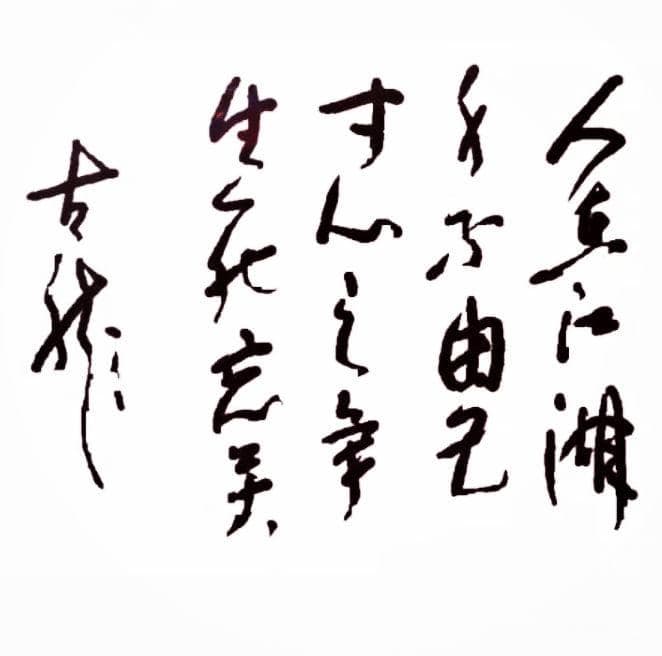 人在江湖
身不由己
寸心之争
生死忘矣
古龍